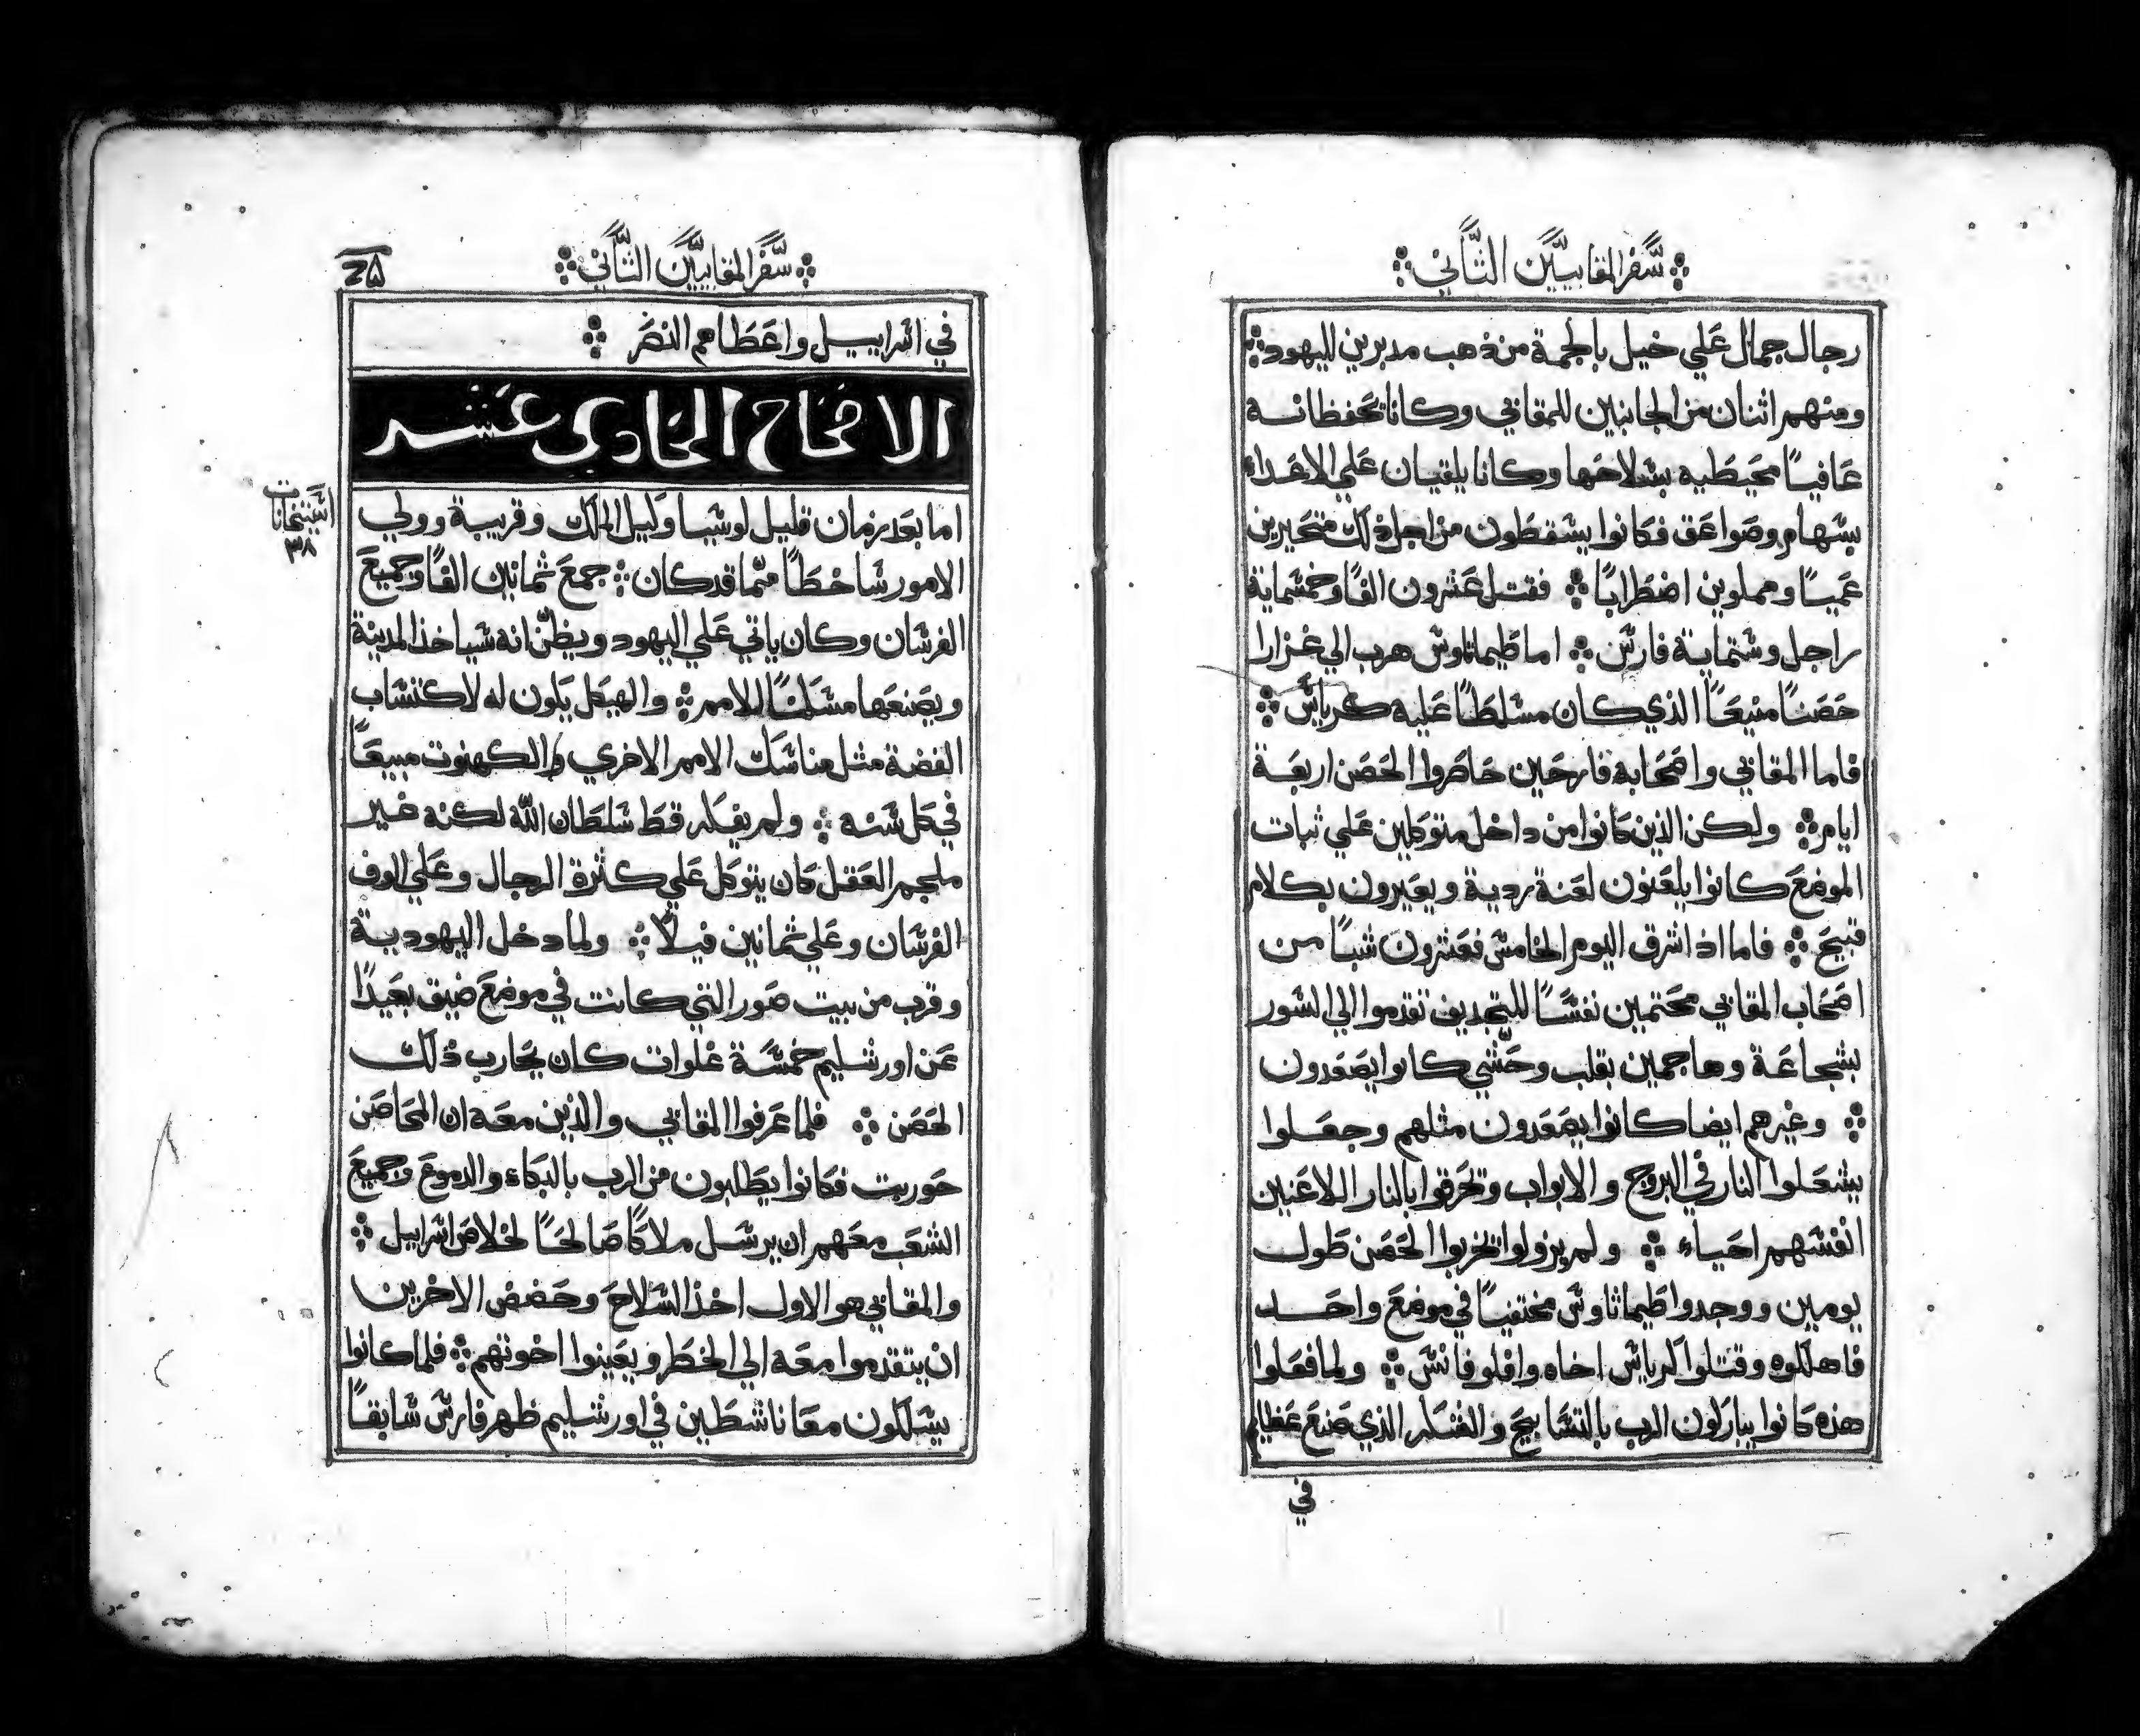 سفر المقابيين الثاني
رجال جمال علي خيل بالجمة من ذهب مدبرين لليهود
ومنهم اثنان من الجانبين للمقابي وكانا تحفظانه
عافيًا محيطيه بسلاحها وكانا يلقيان علي الاعداء
بسهام وصواعق فكانوا يسقطون من اجل ذلك متحيرين
عميًا ومملوين اضطرابًا فقتل عشرون الفًا وخمسماية
راجل وستماية فارس اما طيماتاوس هرب الي غزارا
حصنًا منيعًا الذي كان مسلطًا عليه كرياس
فاما المقابي واصحابه فارحين حاصروا الحصن اربعة
ايام ولكن الذين كانوا من داخل متوكلين علي ثبات
الموضع كانوا يلعنون لعنة ردية ويعيرون بكلام
قبيح فاما اذ اشرق اليوم الخامس فعشرون شبًا من
اصحاب المقابي محتمين نفسًا للتجديف تقدموا الي السور
بشجاعة وهاجمين بقلب وحشي كانوا يصعدون
وغيرهم ايضا كانوا يصعدون مثلهم وجعلوا
يشعلوا النار في البروج والابواب وتحرقوا بالنار اللاعنين
انفسهم احياء ولم يزولوا تخربوا الحصن طول
يومين ووجدوا طيماثاوس مختفيًا في موضع واحد
فاهلكوه وقتلوا كرياس اخاه وافلوفانس ولما فعلوا
هذه كانوا يباركون الرب بالتسابيح والشكر الذي صنع عظايم
في
سفر المقابيين الثاني
في اسراييل واعطاهم النصر
الاصحاح الحادي عشر
اما بعد زمان قليل لوسيا وكيل الملك وقريبة وولي
الامور ساخطًا مما قد كان جمع ثمانين الفًا وجميع
الفرسان وكان ياتي علي اليهود ويظن انه سياخذ المدينة
ويصنعها مسكنًا للامم والهيكل يكون له لاكتساب
الفضة مثل مناسك الامم الاخري والكهنوت مبيعًا
في كل سنه ولم يفكر قط سلطان الله لكنه غير
ملجم العقل كان يتوكل علي كثرة الرجال وعلي الوف
الفرسان وعلي ثمانين فيلًا ولما دخل اليهودية
وقرب من بيت صور التي كانت في موضع ضيق بعيدًا
عن اورشليم خمسة غلوات كان يحارب ذلك
الحصن فلما عرفوا المقابي والذين معه ان المحاصن
حوربت فكانوا يطلبون من الرب بالبكاء والدموع وجميع
الشعب معهم ان يرسل ملاكًا صالحًا لخلاص اسراييل
والمقابي هو الاول اخذ السلاح وحضض الاخرين
ان يتقدموا معه الي الخطر ويعينوا اخوتهم فلما كانوا
يسلكون معًا ناشطين في اورشليم ظهر فارس سابقًا